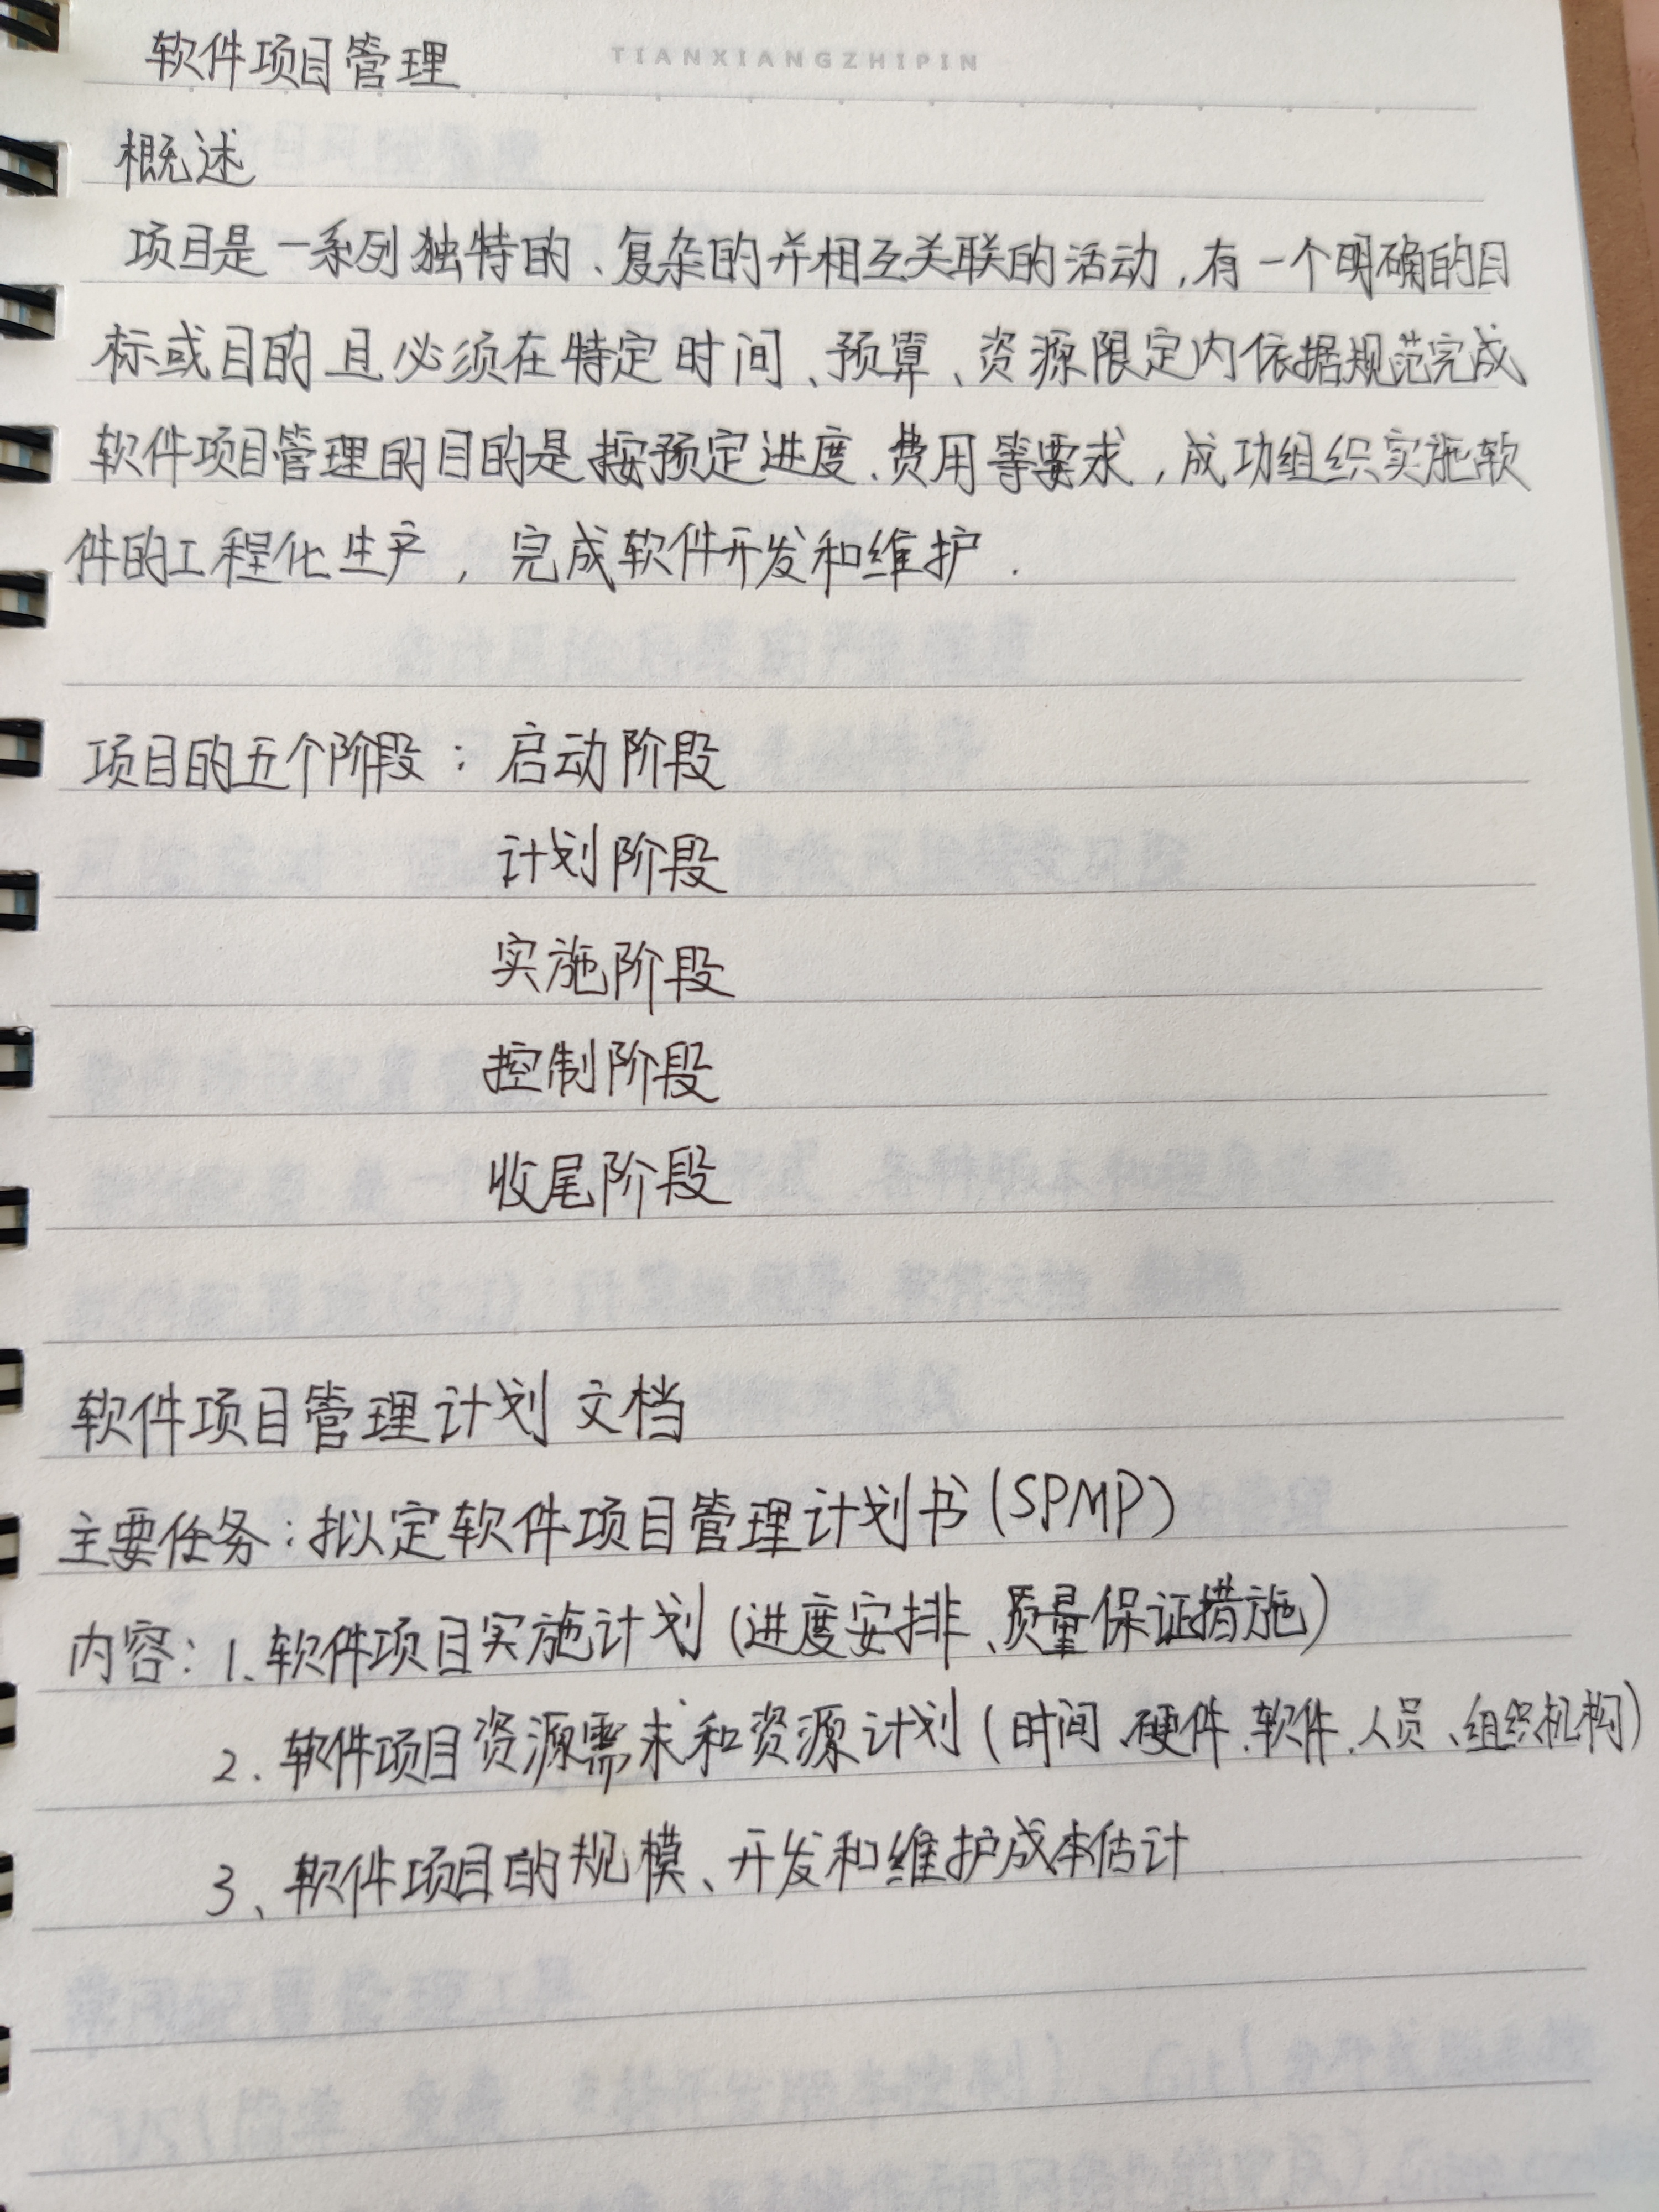 TIANXIANGZHIPIN
软件项目管理
概述
项目是一系列独特的、复杂的并相互关联的活动,有一个明确的目
标或目的且必须在特定时间、预算、资源限定内依据规范完成
软件项目管理的目的是按预定进度、费用等要求,成功组织实施软
件的工程化生产,完成软件开发和维护.
项目的五个阶段:启动阶段
计划阶段
实施阶段
控制阶段
收尾阶段
软件项目管理计划文档
主要任务:拟定软件项目管理计划书(SPMP)
内容:1、软件项目实施计划(进度安排、质量保证措施)
2、软件项目资源需求和资源计划(时间、硬件、软件、人员、组织机构)
3、软件项目的规模、开发和维护成本估计